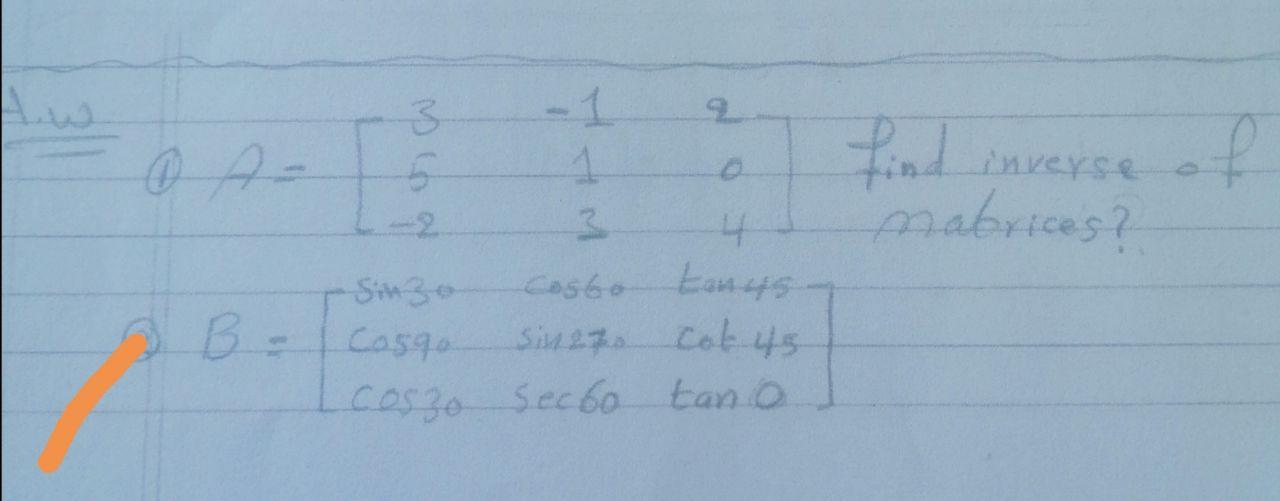 H.w
① A = [ 3 -1 2
5 1 0
-2 3 4 ] find inverse of matrices?
② B = [ sin30 cos60 tan45
cos90 sin270 cot 45
cos30 sec60 tan 0 ]